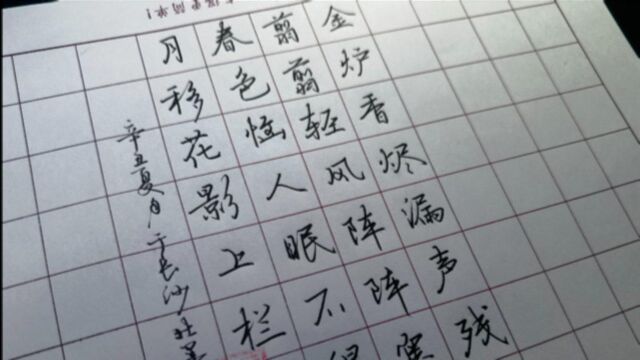 金炉香烬漏声残
翦翦轻风阵阵寒
春色恼人眠不得
月移花影上栏
辛丑夏月于长沙